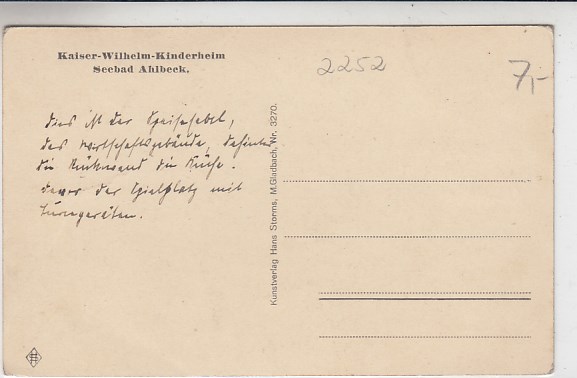 Kaiser-Wilhelm-Kinderheim
Seebad Ahlbeck.
2252
7,-
dies ist der Speisesaal,
das Wirtschaftsgebäude, dahinter
die Rückwand die Küche.
davor der Spielplatz mit
Turngeräten.
Kunstverlag Hans Storms, M.Gladbach, Nr. 3270.